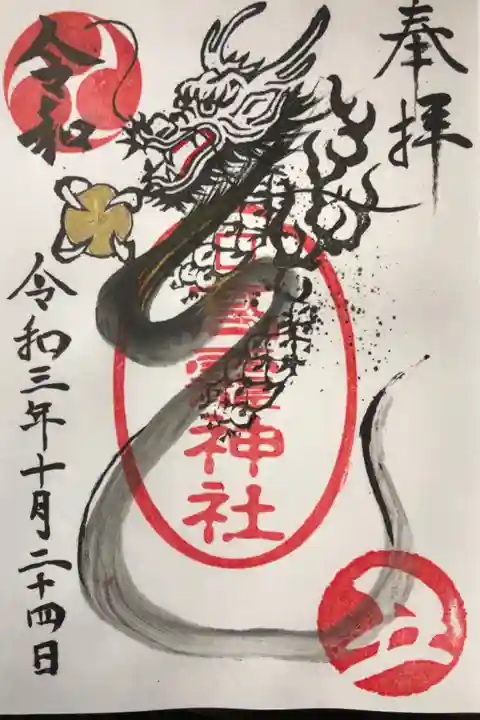 奉拝
令和
神社
令和三年十月二十四日